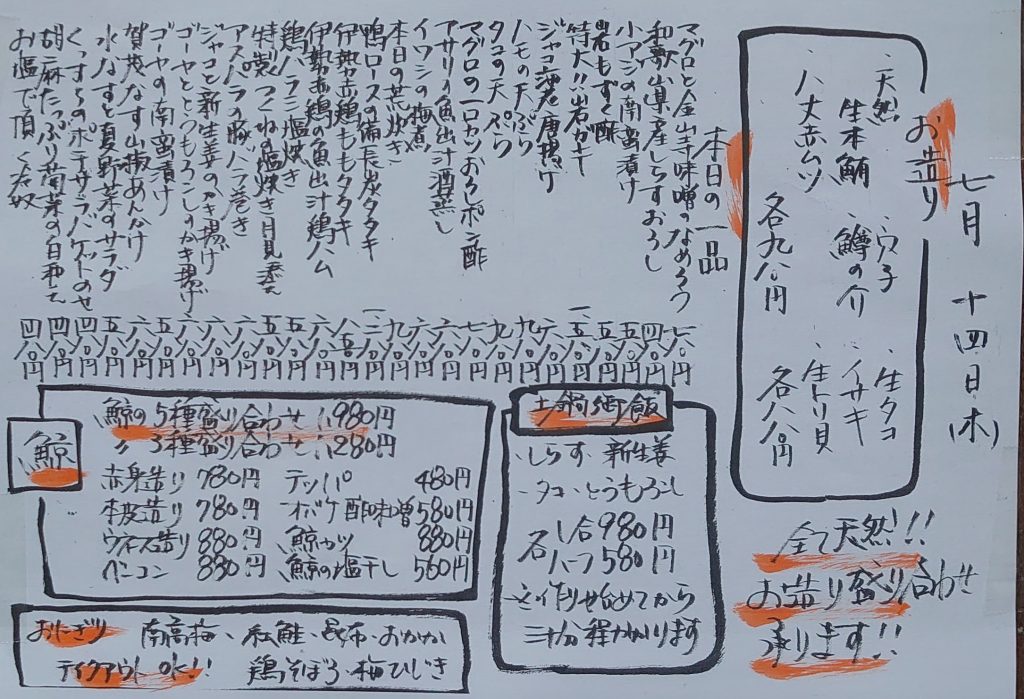 七月十四日(木)
お造り
、天然 、穴子 、生タコ
生本鮪 、鱒の介 、イサキ
、八丈赤ムツ 、生トリ貝
各九八〇円 各八八〇円
全て天然!!
お造り盛り合わせ
承ります!!
本日の一品
マグロと金山寺味噌のなめろう 七八〇円
和歌山県産しらすおろし 四八〇円
小アジの南蛮漬け 五八〇円
岩もずく酢 五八〇円
特大!!岩ガキ 一、五八〇円
ジャコ海老唐揚げ 六八〇円
ハモの天ぷら 九八〇円
タコの天ぷら 九八〇円
マグロの一口カツおろしポン酢 七八〇円
アサリの魚出汁酒蒸し 九八〇円
イワシの梅煮 六八〇円
本日の荒炊き 六八〇円
鴨ロースの備長炭タタキ 九八〇円
伊勢赤鶏ももタタキ 一、二八〇円
伊勢赤鶏の魚出汁鶏ハム 八五〇円
鶏ハラミ塩焼き 六八〇円
特製つくね塩焼き月見添え 五八〇円
アスパラの豚バラ巻き 五八〇円
ジャコと新生姜のかき揚げ 六八〇円
ゴーヤととうもろこしのかき揚げ 六八〇円
ゴーヤの南蛮漬け 六八〇円
賀茂なす山椒あんかけ 六八〇円
水なすと夏野菜のサラダ 五八〇円
ポテサラバゲットのせ 四八〇円
胡麻たっぷり青菜の白和え 四八〇円
お塩で頂く冷奴 四八〇円
土鍋御飯
、しらす 新生姜
、タコ、とうもろこし
各 1合980円
ハーフ580円
※作り始めてから
三十分程かかります
鯨
鯨の5種盛り合わせ 1,980円
〃 3種盛り合わせ 1,280円
赤身造り 780円 テッパ 480円
本皮造り 780円 オバケ酢味噌 580円
ウネス造り 880円 鯨カツ 880円
ベーコン 880円 鯨の塩干し 560円
おにぎり 南高梅、紅鮭、昆布、おかか
テイクアウトok!! 鶏そぼろ、梅ひじき